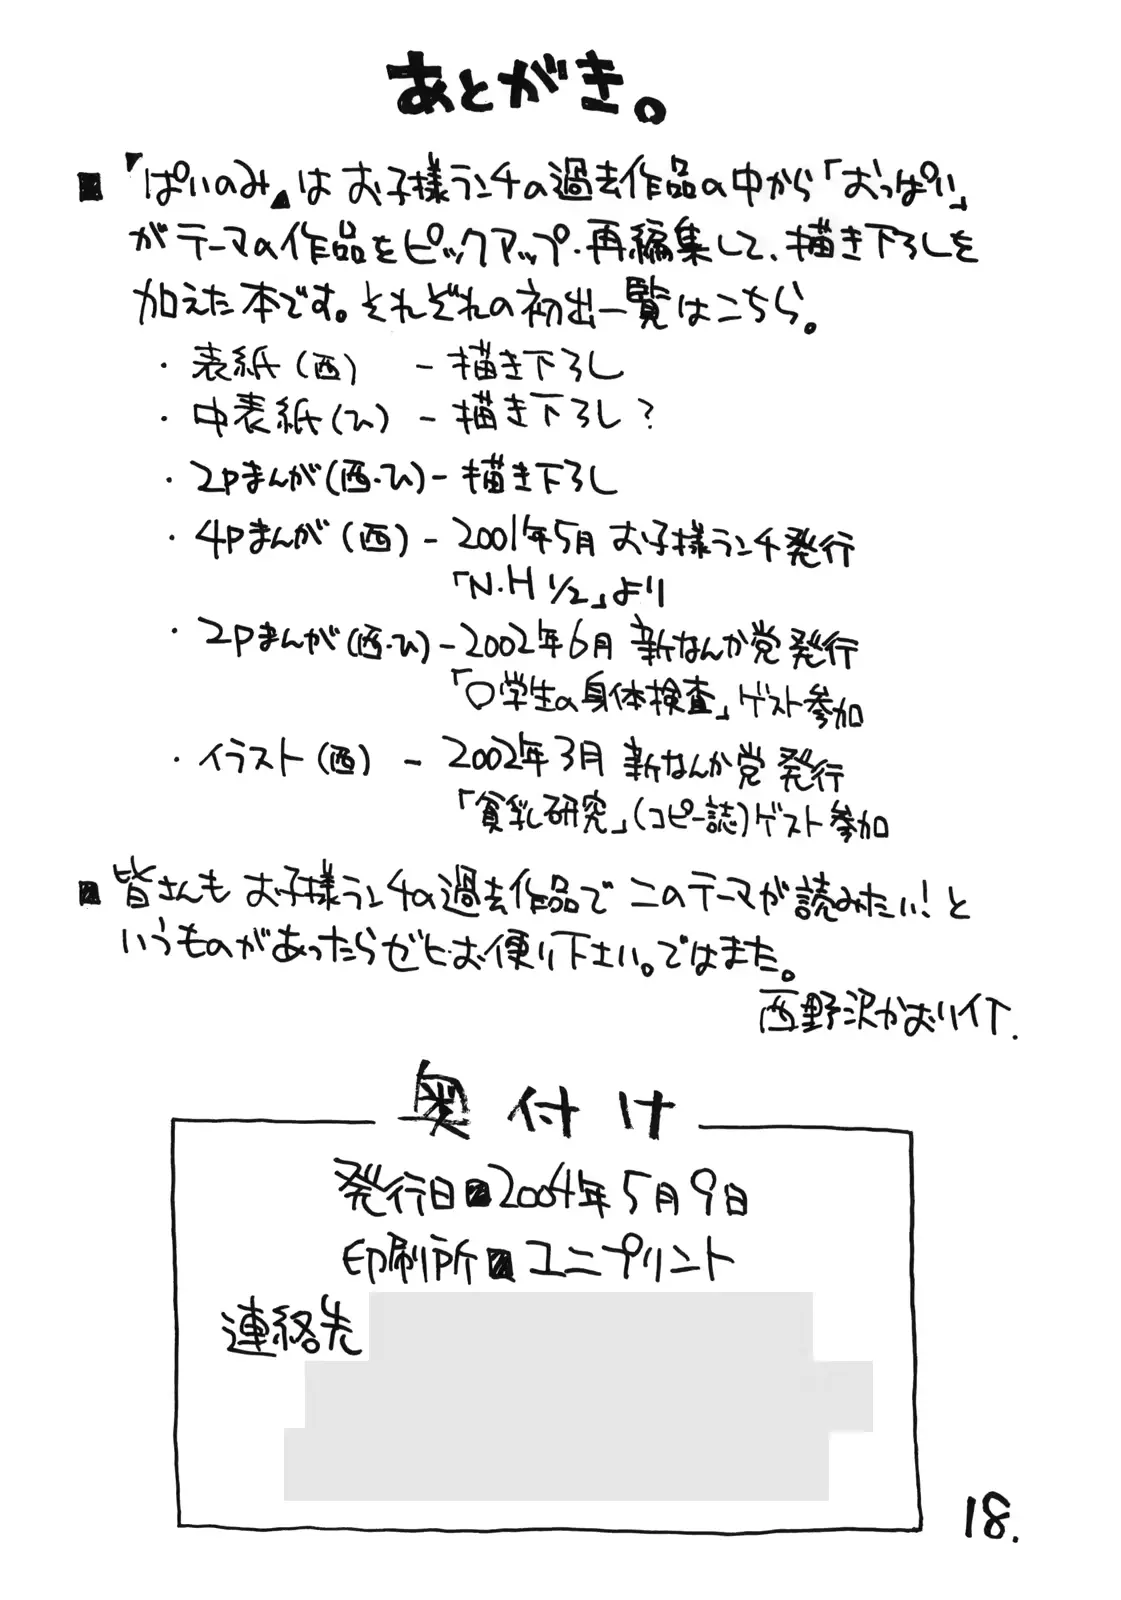 あとがき。
■『ぱいのみ』はお子様ランチの過去作品の中から「おっぱい」
がテーマの作品をピックアップ・再編集して、描き下ろしを
加えた本です。それぞれの初出一覧はこちら。
・表紙(西) ー描き下ろし
・中表紙(ひ)ー描き下ろし?
・2Pまんが(西・ひ)ー描き下ろし
・4Pまんが(西)ー2001年5月 お子様ランチ発行
「N・H 1/2」より
・2Pまんが(西・ひ)ー2002年6月 新なんか党発行
「〇学生の身体検査」ゲスト参加
・イラスト(西) ー2002年3月 新なんか党発行
「貧乳研究」(コピー誌)ゲスト参加
■皆さんもお子様ランチの過去作品でこのテーマが読みたい!と
いうものがあったらゼヒお便り下さい。ではまた。
西野沢かおり
奥付け
発行日■2004年5月9日
印刷所■ユニプリント
連絡先
18.